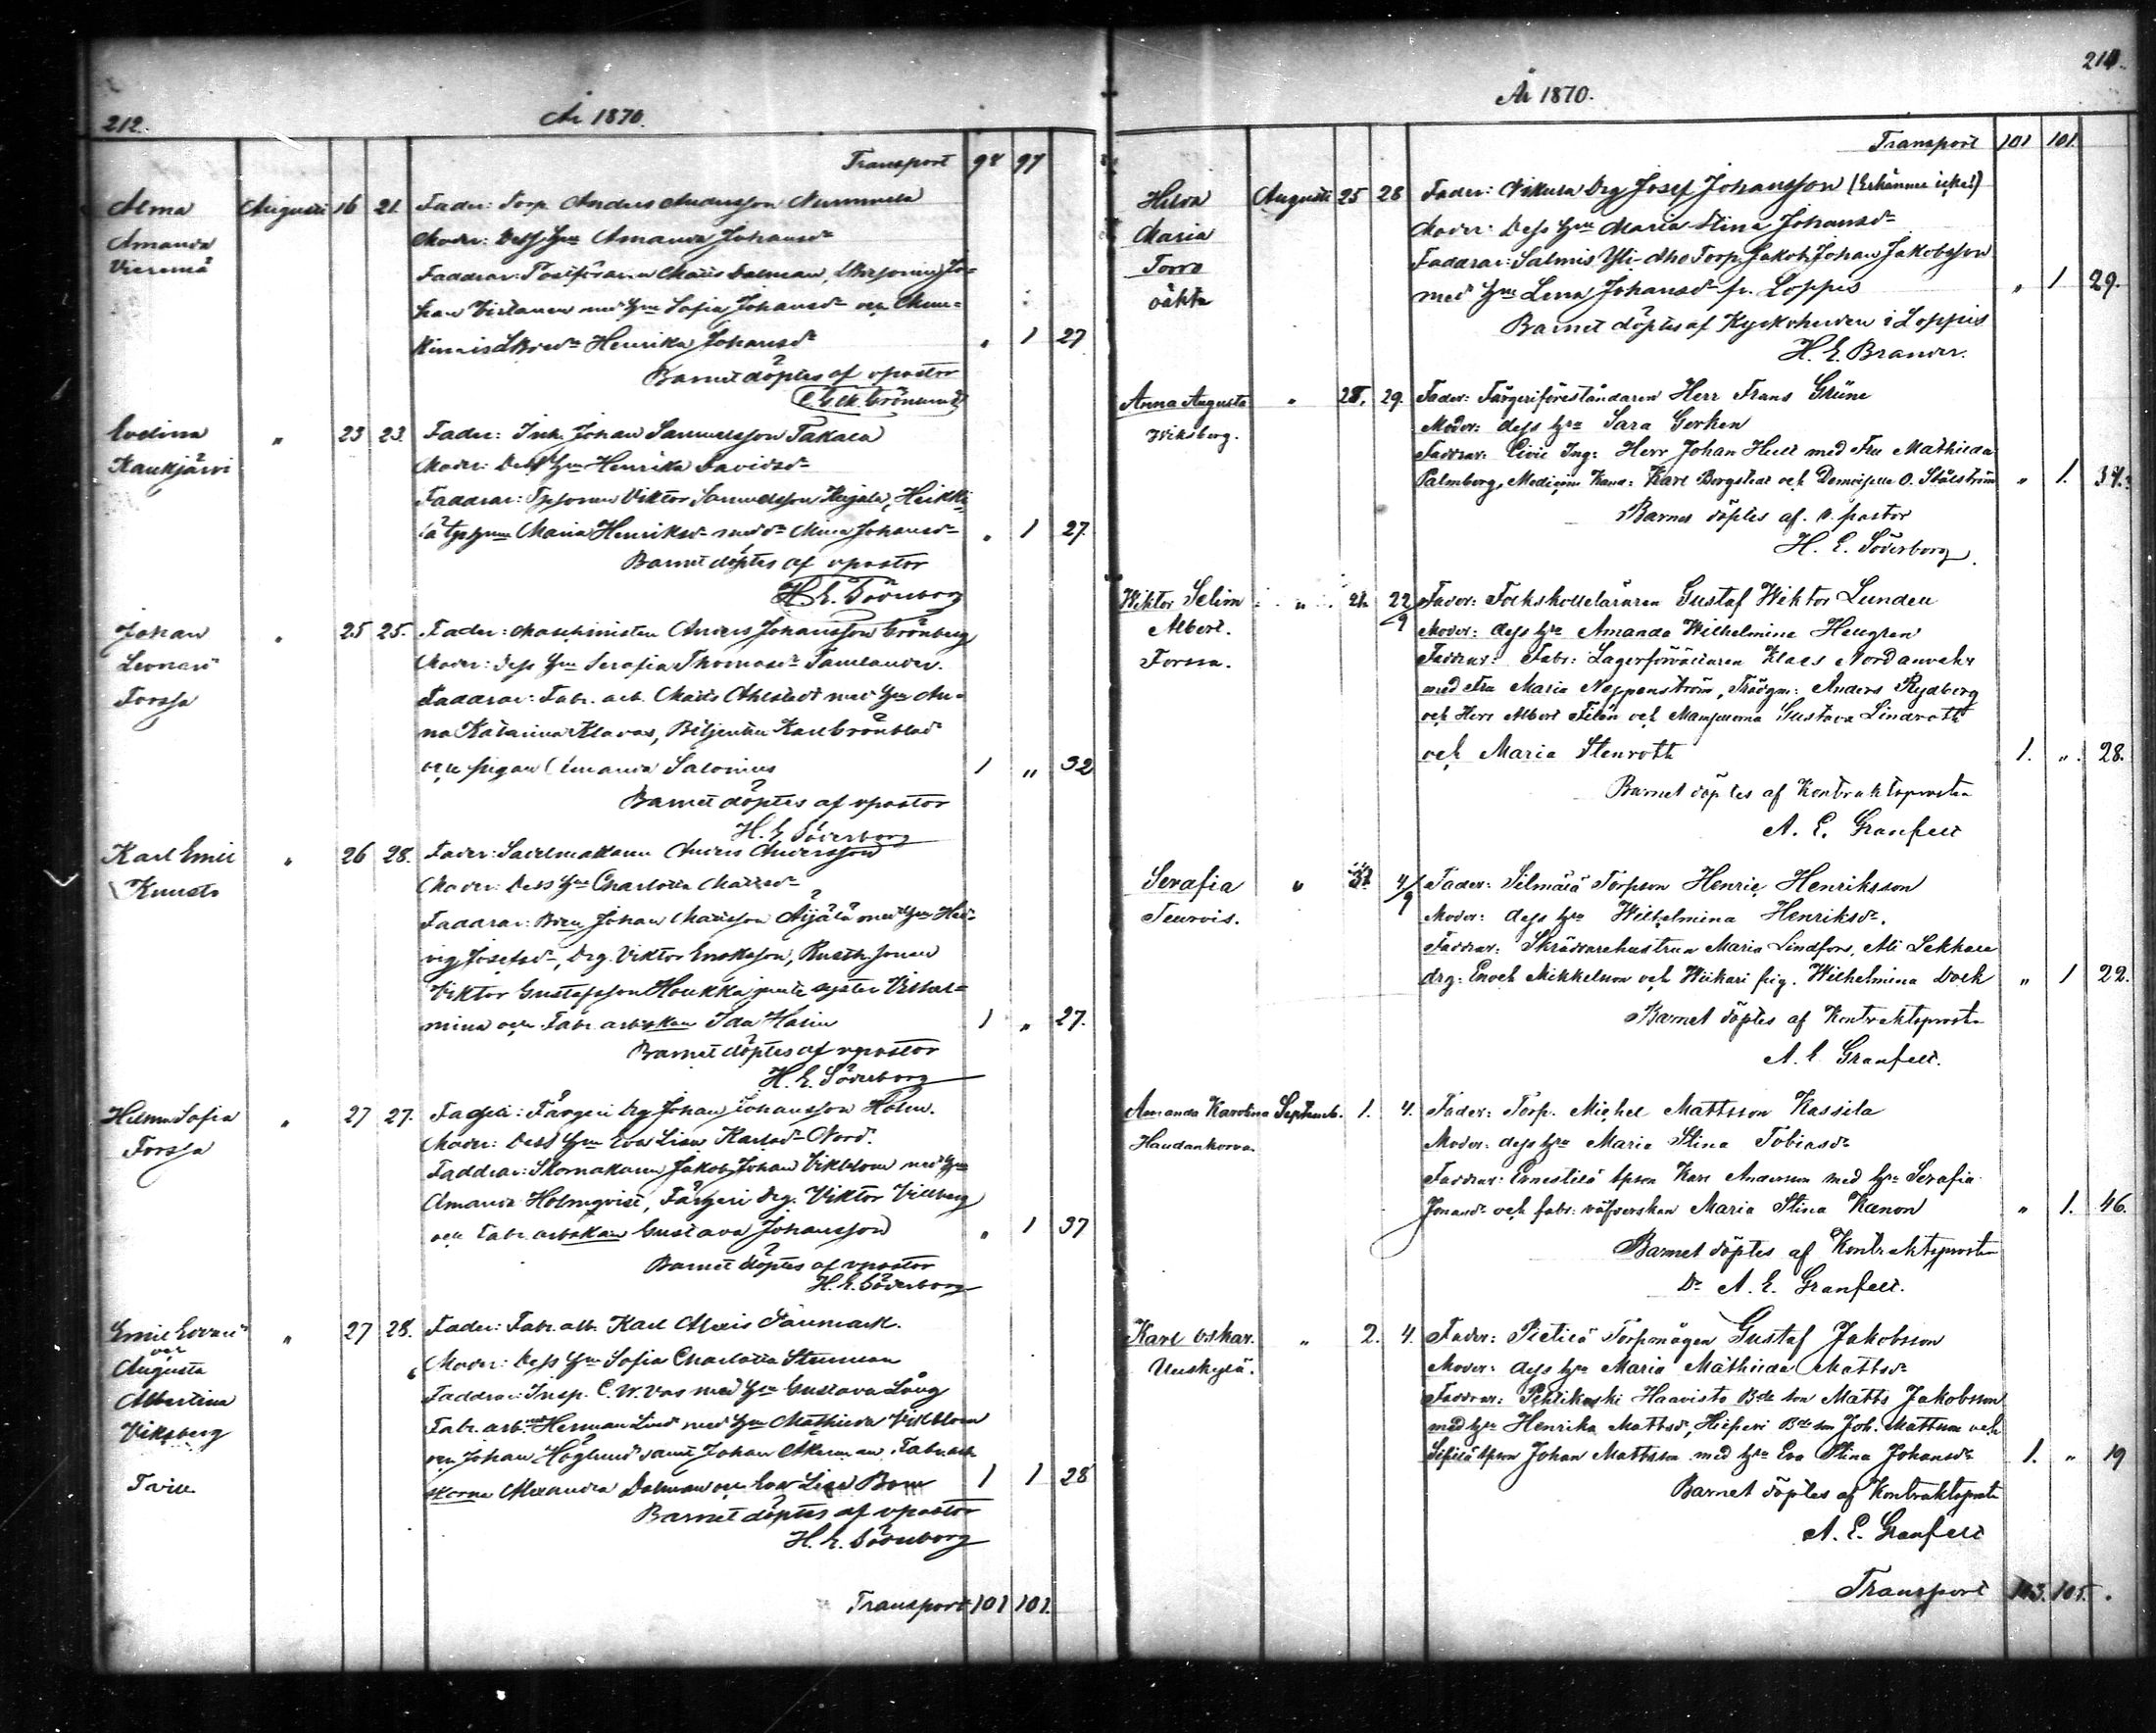 212.
År 1870.
Transport 98 97
Alma Augusti 16 21. Fader: Torp. Anders Andersson Nummela
Amanda Moder: Dess hu Amanda Johansd
Vieremä Faddrar:
han Virtanen med hu Sofia Johansd och
Henrika Johansd " 1 27
Barnet döptes af vpastor
Evelina " 23 23. Fader: Inh. Johan Samuelsson Takala
Kaukjärvi Moder: Dess hu Henrika Davidsd
Faddrar: Tpsonen Viktor Samuelsson Heikki
Maria Henriksd Johansd " 1 27.
Barnet döptes af vpastor
H. E. Söderborg
Johan " 25 25. Fader: Maschinisten Anders Johansson Grönberg
Leonard Moder: Dess hu Serafia Thomasd Tamlander.
Forssa Faddrar: Fabr. arb. Matts Ahlstedt med hu An-
na Katarina Klavas, Betjenten Karl Grönblad
och pigan Amanda Salonius 1 " 32
Barnet döptes af vpastor
H. E. Söderborg
Karl Emil " 26 28. Fader: Sadelmakaren Anders Andersson
Kuusto Moder: Dess hu Charlotta Mattsd
Faddrar: Johan Mattsson Äijälä med hu Hed-
vig Josefsd, Drg. Viktor Enoksson,
Viktor Gustafsson Houkka jemte syster Vilhel-
mina och Fabr. arbskan Ida Halin 1 " 27.
Barnet döptes af vpastor
H. E. Söderborg
Hilma Sofia " 27 27. Fader: Färgeri drg Johan Johansson Holm.
Forssa Moder: Dess hu Eva Lisa Karlsd Nord.
Faddrar: Skomakaren Jakob Johan Vikblom med hu
Amanda Holmqvist, Färgeri drg. Viktor Villberg
och Fabr. arbskan Gustava Johansson " 1 37
Barnet döptes af vpastor
H. E. Söderborg
Emil Edvard " 27 28. Fader: Fabr. arb. Karl Alexis Danmark.
och
Augusta Moder: Dess hu Sofia Charlotta Stenman
Albertina Faddrar: Insp. C. W. Vas med hu Gustava Lång
Viksberg Fabr. arb. Herman Lind med hu Mathilda Vikblom
och Johan Höglund samt Johan Åkerman, Fabr. arb.
Tvill. skorna Alexandra Dalman och Eva Lisa Bom 1 1 28
Barnet döptes af vpastor
H. E. Söderborg
Transport 101 101.
214.
År 1870.
Transport 101 101.
Hilda Augusti 25 28 Fader: Drg Josef Johansson (Erkännes icke!)
Maria Moder: Dess hu Maria Stina Johansd
Torro Faddrar: Salmis Torp. Jakob Johan Jakobsson
med hu Lena Johansd fr. Loppis " 1 29.
Barnet döptes af Kyrkoherden i Loppis
H. E. Brander.
Anna Augusta " 28. 29. Fader: Färgeriföreståndaren Herr Frans Grüne
Wiksberg. Moder: dess hu Sara Gerken
Faddrar: Civil Ing: Herr Johan Hult med Fru Mathilda
Palmberg, Medicine Kand: Karl Bergstedt och Demoiselle O. Stålström " 1. 34.
Barnet döptes af v. pastor
H. E. Söderborg.
Wiktor Selim " 21. 22/9 Fader: Folkskolleläraren Gustaf Wiktor Lunden
Albert. Moder: dess hu Amanda Wilhelmina Hellgren
Forssa. Faddrar: Fabr: Lagerförvaltaren Klaes Nordanvahr
med Fru Maria Neppenström, Trädgm: Anders Rydberg
och Herr Albert Felén och Mamsellerna Gustava Lindroth
och Maria Stenroth 1. " 28.
Barnet döptes af Kontraktsprosten
A. E. Granfelt
Serafia " 31 4/9 Fader: Silmälä Torpson Henric Henriksson
Teuroïs. Moder: dess hu Wilhelmina Henriksd.
Faddrar: Skräddarehustrun Maria Lindfors, Ali Lekkala
drg: Enoch Mikkelsson och Wiikari pig. Wilhelmina " 1 22.
Barnet döptes af Kontraktsprosten
A. E. Granfelt.
Amanda Karolina Septemb. 1. 4. Fader: Torp. Michel Mattsson Kassila
Haudankorva. Moder: dess hu Maria Stina Tobiasd
Faddrar: Ernestilä tpson Karl Andersson med hu Serafia
Jonasd och fabr: väfverskan Maria Stina Kanon " 1. 46.
Barnet döptes af Kontraktsprosten
Dr A. E. Granfelt.
Karl Oskar. " 2. 4. Fader: Pietilä Torpmågen Gustaf Jakobsson
Uuskylä. Moder: dess hu Maria Mathilda Mattsd
Faddrar: Haavisto Bde son Matts Jakobsson
med hu Henrika Mattsd, Bde son Joh. Mattsson och
tpson Johan Mattsson med hu Eva Stina Johansd 1. " 19
Barnet döptes af Kontraktsprosten
A. E. Granfelt
Transport 103. 105.